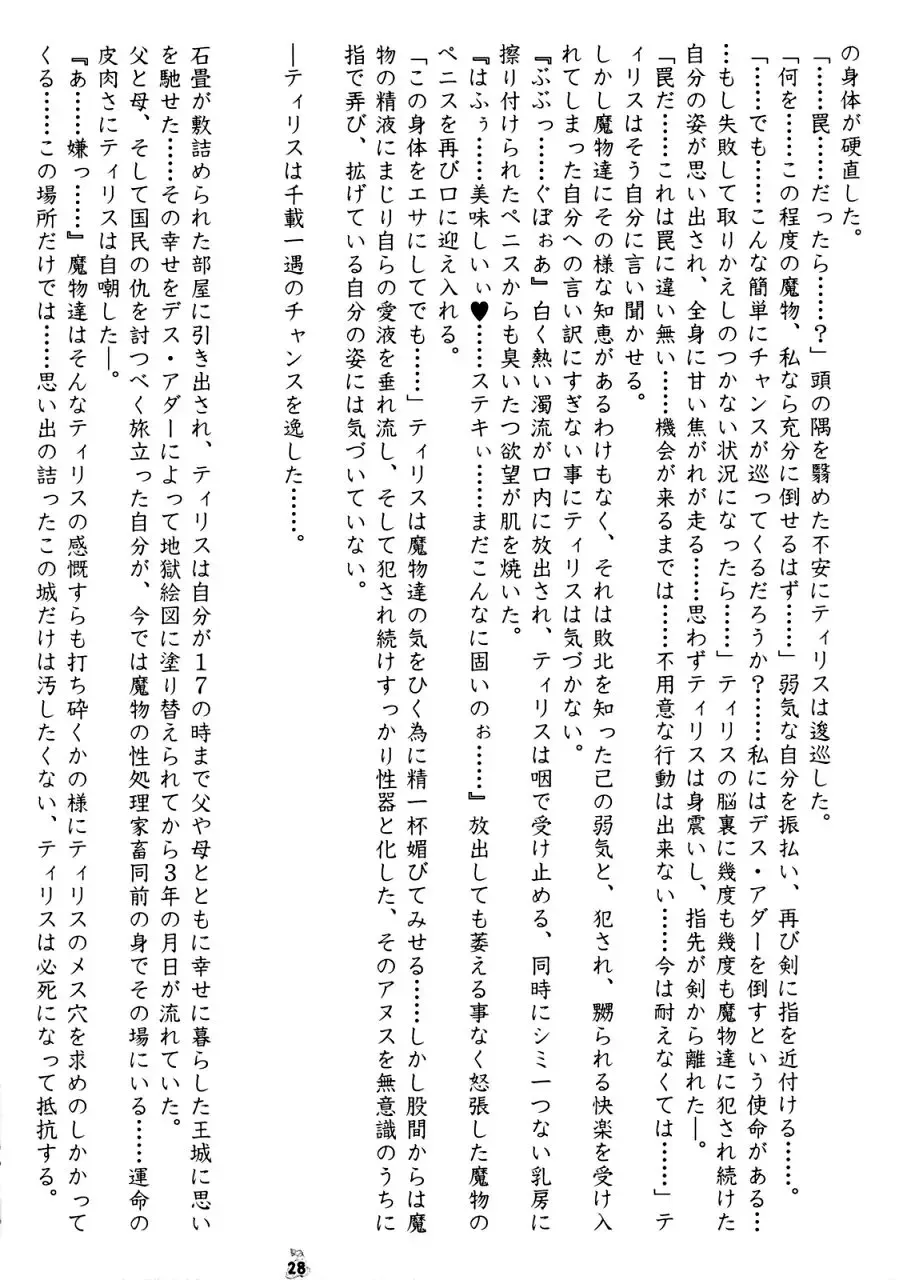 の身体が硬直した。
「……罠……だったら……?」頭の隅を翳めた不安にティリスは逡巡した。
「何を……この程度の魔物、私なら充分に倒せるはず……」弱気な自分を振払い、再び剣に指を近付ける……。
「……でも……こんな簡単にチャンスが巡ってくるだろうか?……私にはデス・アダーを倒すという使命がある…
…もし失敗して取りかえしのつかない状況になったら……」ティリスの脳裏に幾度も幾度も魔物達に犯され続けた
自分の姿が思い出され、全身に甘い焦がれが走る……思わずティリスは身震いし、指先が剣から離れた―。
「罠だ……これは罠に違い無い……機会が来るまでは……不用意な行動は出来ない……今は耐えなくては……」テ
ィリスはそう自分に言い聞かせる。
しかし魔物達にその様な知恵があるわけもなく、それは敗北を知った己の弱気と、犯され、嬲られる快楽を受け入
れてしまった自分への言い訳にすぎない事にティリスは気づかない。
『ぶぶっ……ぐぼぉぁ』白く熱い濁流が口内に放出され、ティリスは咽で受け止める、同時にシミ一つない乳房に
擦り付けられたペニスからも臭いたつ欲望が肌を焼いた。
『はふぅ……美味しいぃ♥……ステキぃ……まだこんなに固いのぉ……』放出しても萎える事なく怒張した魔物の
ペニスを再び口に迎え入れる。
「この身体をエサにしてでも……」ティリスは魔物達の気をひく為に精一杯媚びてみせる……しかし股間からは魔
物の精液にまじり自らの愛液を垂れ流し、そして犯され続けすっかり性器と化した、そのアヌスを無意識のうちに
指で弄び、拡げている自分の姿には気づいていない。
―ティリスは千載一遇のチャンスを逸した……。
石畳が敷詰められた部屋に引き出され、ティリスは自分が17の時まで父や母とともに幸せに暮らした王城に思い
を馳せた……その幸せをデス・アダーによって地獄絵図に塗り替えられてから3年の月日が流れていた。
父と母、そして国民の仇を討つべく旅立った自分が、今では魔物の性処理家畜同前の身でその場にいる……運命の
皮肉さにティリスは自嘲した―。
『あ……嫌っ……』魔物達はそんなティリスの感慨すらも打ち砕くかの様にティリスのメス穴を求めのしかかって
くる……この場所だけでは……思い出の詰ったこの城だけは汚したくない、ティリスは必死になって抵抗する。
28